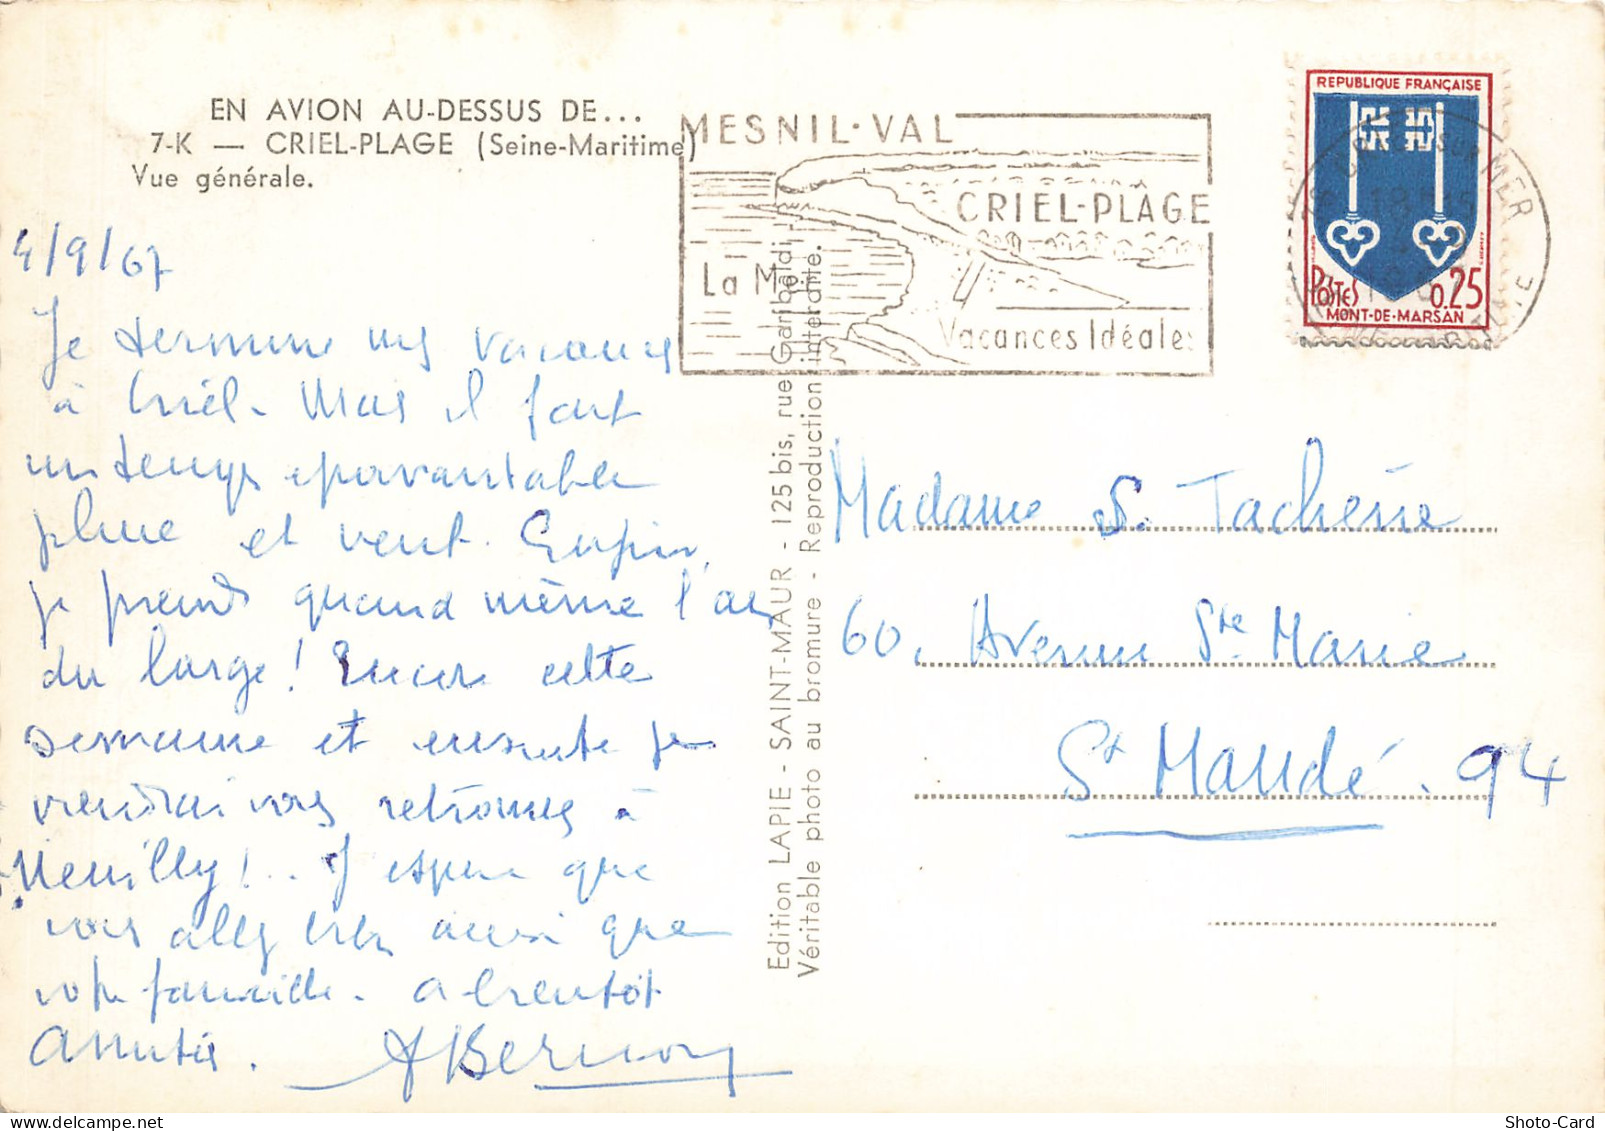 EN AVION AU-DESSUS DE...
7-K — CRIEL-PLAGE (Seine-Maritime)
Vue générale.
MESNIL-VAL
CRIEL-PLAGE
La Mer
Vacances Idéales
REPUBLIQUE FRANÇAISE
POSTES 0.25
MONT-DE-MARSAN
SUR MER
4/9/67
Je termine mes vacances
à Criel. Mais il fait
un temps épouvantable
pluie et vent. Enfin,
je prends quand même l'air
du large! Encore cette
semaine et ensuite je
viendrai vous retrouver à
Neuilly!.. J'espère que
vous allez bien ainsi que
votre famille. A bientôt
Amitiés.
Edition LAPIE - SAINT-MAUR - 125 bis, rue Garibaldi -
Véritable photo au bromure - Reproduction interdite.
Madame S.
60, Avenue Ste Marie
St Mandé. 94
Shoto-Card